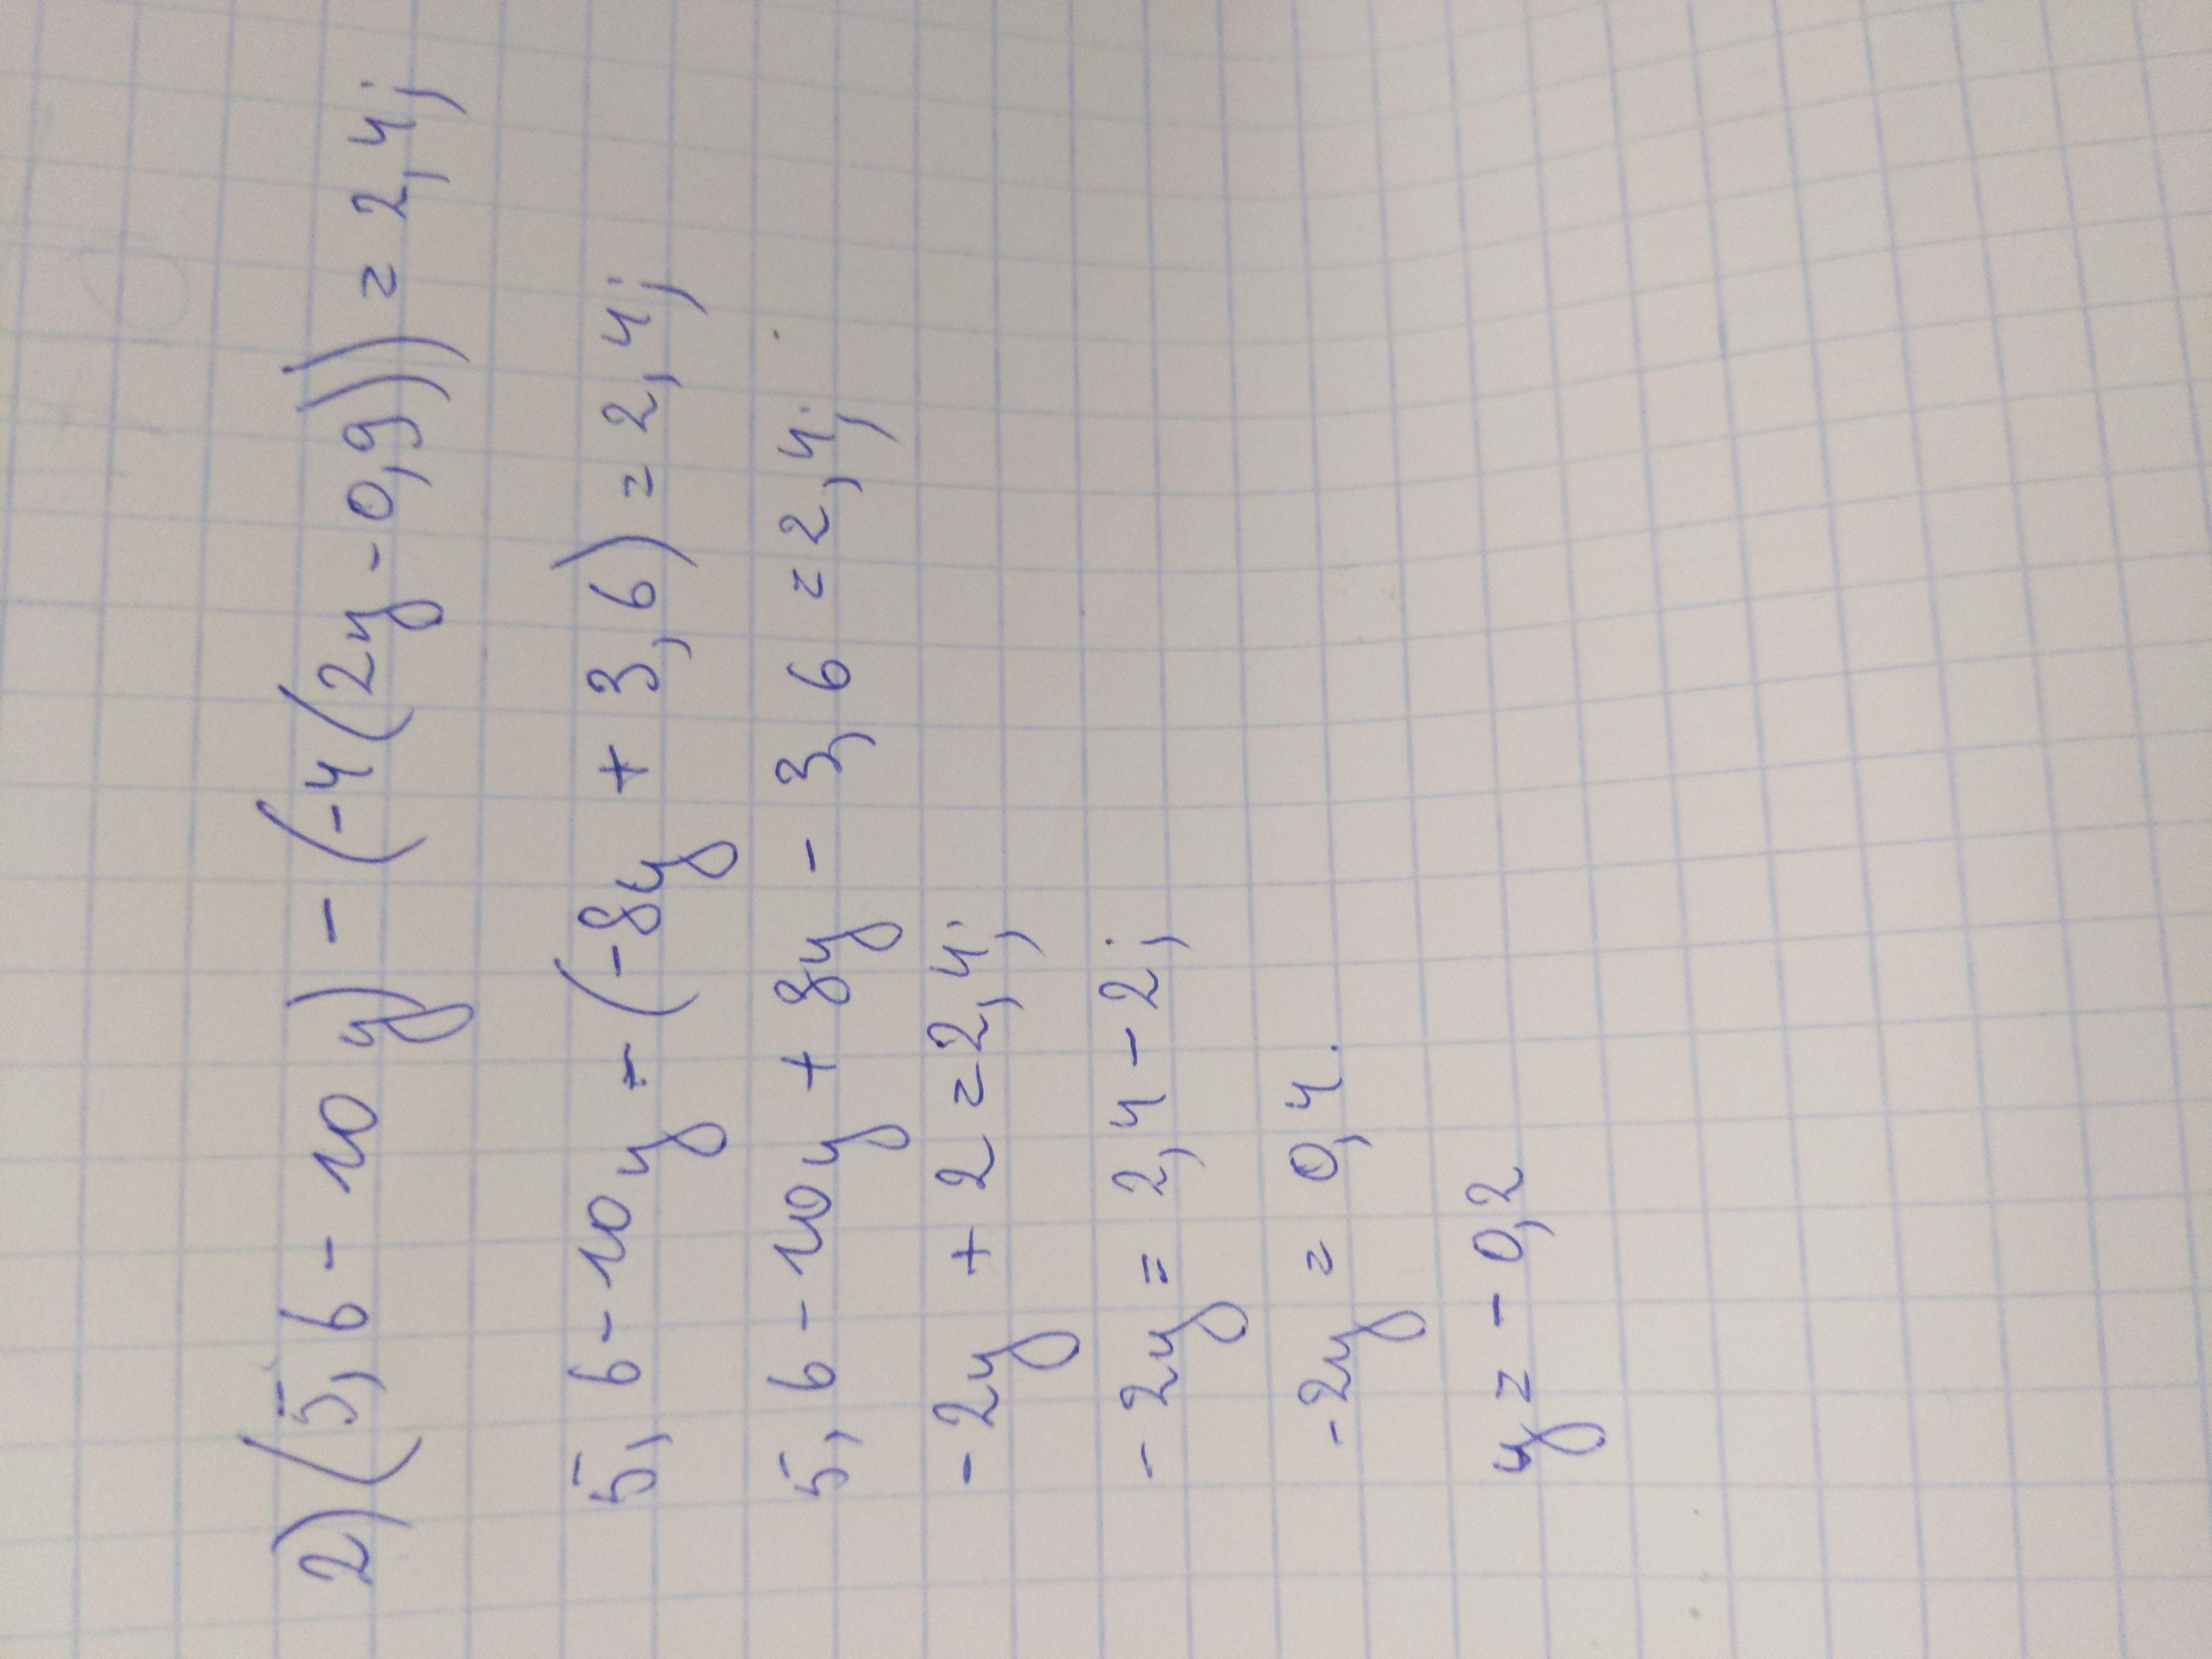 2) (5,6 - 10y) - (-4(2y - 0,9)) = 2,4;
5,6 - 10y - (-8y + 3,6) = 2,4;
5,6 - 10y + 8y - 3,6 = 2,4;
-2y + 2 = 2,4;
-2y = 2,4 - 2;
-2y = 0,4.
y = -0,2